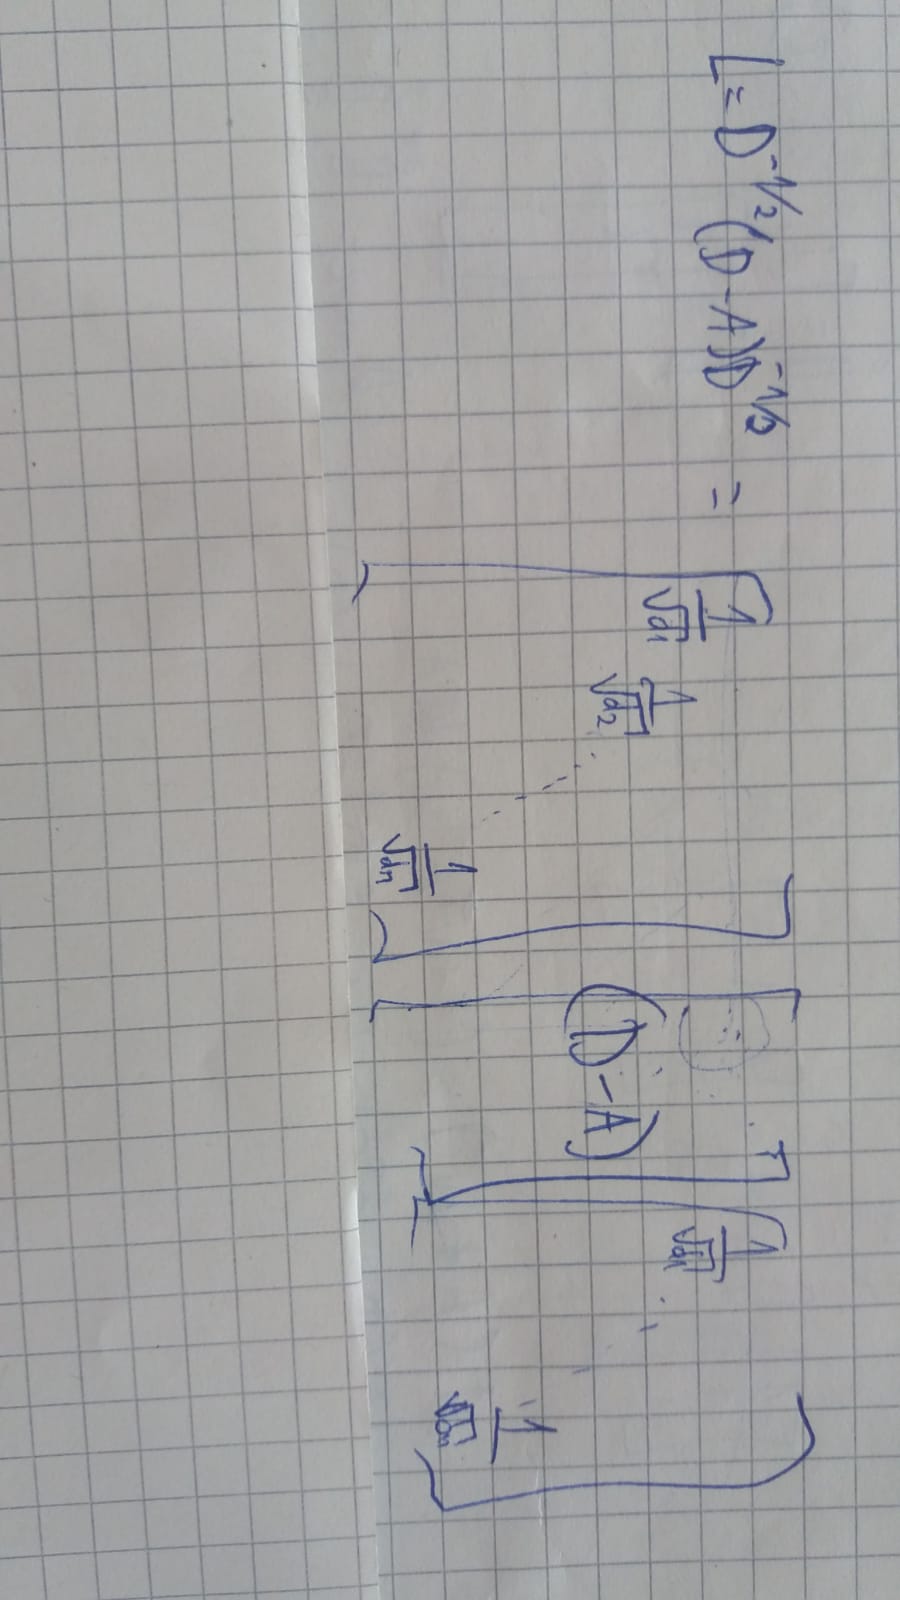 L = D^{-1/2} (D - A) D^{-1/2} = [ 1/√d1 1/√d2 ⋱ 1/√dn ] [ (D - A) ] [ 1/√d1 ⋱ 1/√dn ]